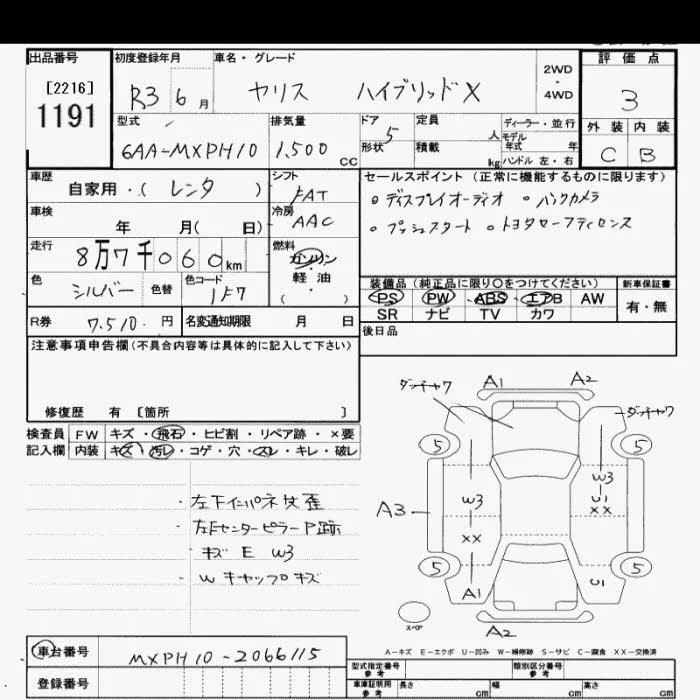 出品番号
[2216]
1191
初度登録年月
R3 6月
車名・グレード
ヤリス ハイブリッドX
2WD
・
4WD
評価点
3
外装 内装
C B
型式
6AA-MXPH10
排気量
1,500 CC
ドア 5
形状
定員 人
積載 kg
ディーラー・並行
モデル
年式 年
ハンドル 左・右
車歴
自家用・(レンタ)
シフト
FAT
車検
年 月( 日)
冷房
AAC
走行
8万7千060km
燃料
ガソリン
・
軽油
( )
色
シルバー
色替
色コード
1F7
R券 7.510.円
名変通知期限 月 日
セールスポイント(正常に機能するものに限ります)
・ディスプレイオーディオ ・バックカメラ
・プッシュスタート ・トヨタセーフティセンス
装備品(純正品に限り○をつけてください)
PS PW ABS エアB AW
SR ナビ TV カワ
新車保証書
有・無
後日品
注意事項申告欄(不具合内容等は具体的に記入して下さい)
修復歴 有 [箇所 ]
検査員
記入欄
FW キズ・飛石・ヒビ割・リペア跡・×要
内装 キズ・汚レ・コゲ・穴・スレ・キレ・破レ
・左下インパネ女歪
・左Fセンターピラー P跡
・キズ E W3
・W キャップ キズ
ダッチャク A1 A2 ダッチャク
5 5
W3 W3
U1
A3 XX XX
5 5
A1 U1
スペア
A2
A-キズ E-エクボ U-凹み W-補修跡 S-サビ C-腐食 XX-交換済
車台番号 MXPH10-2066115
登録番号
型式指定番号
参考
類別区分番号
参考
車庫証明用
参考
長さ cm 幅 cm 高さ cm